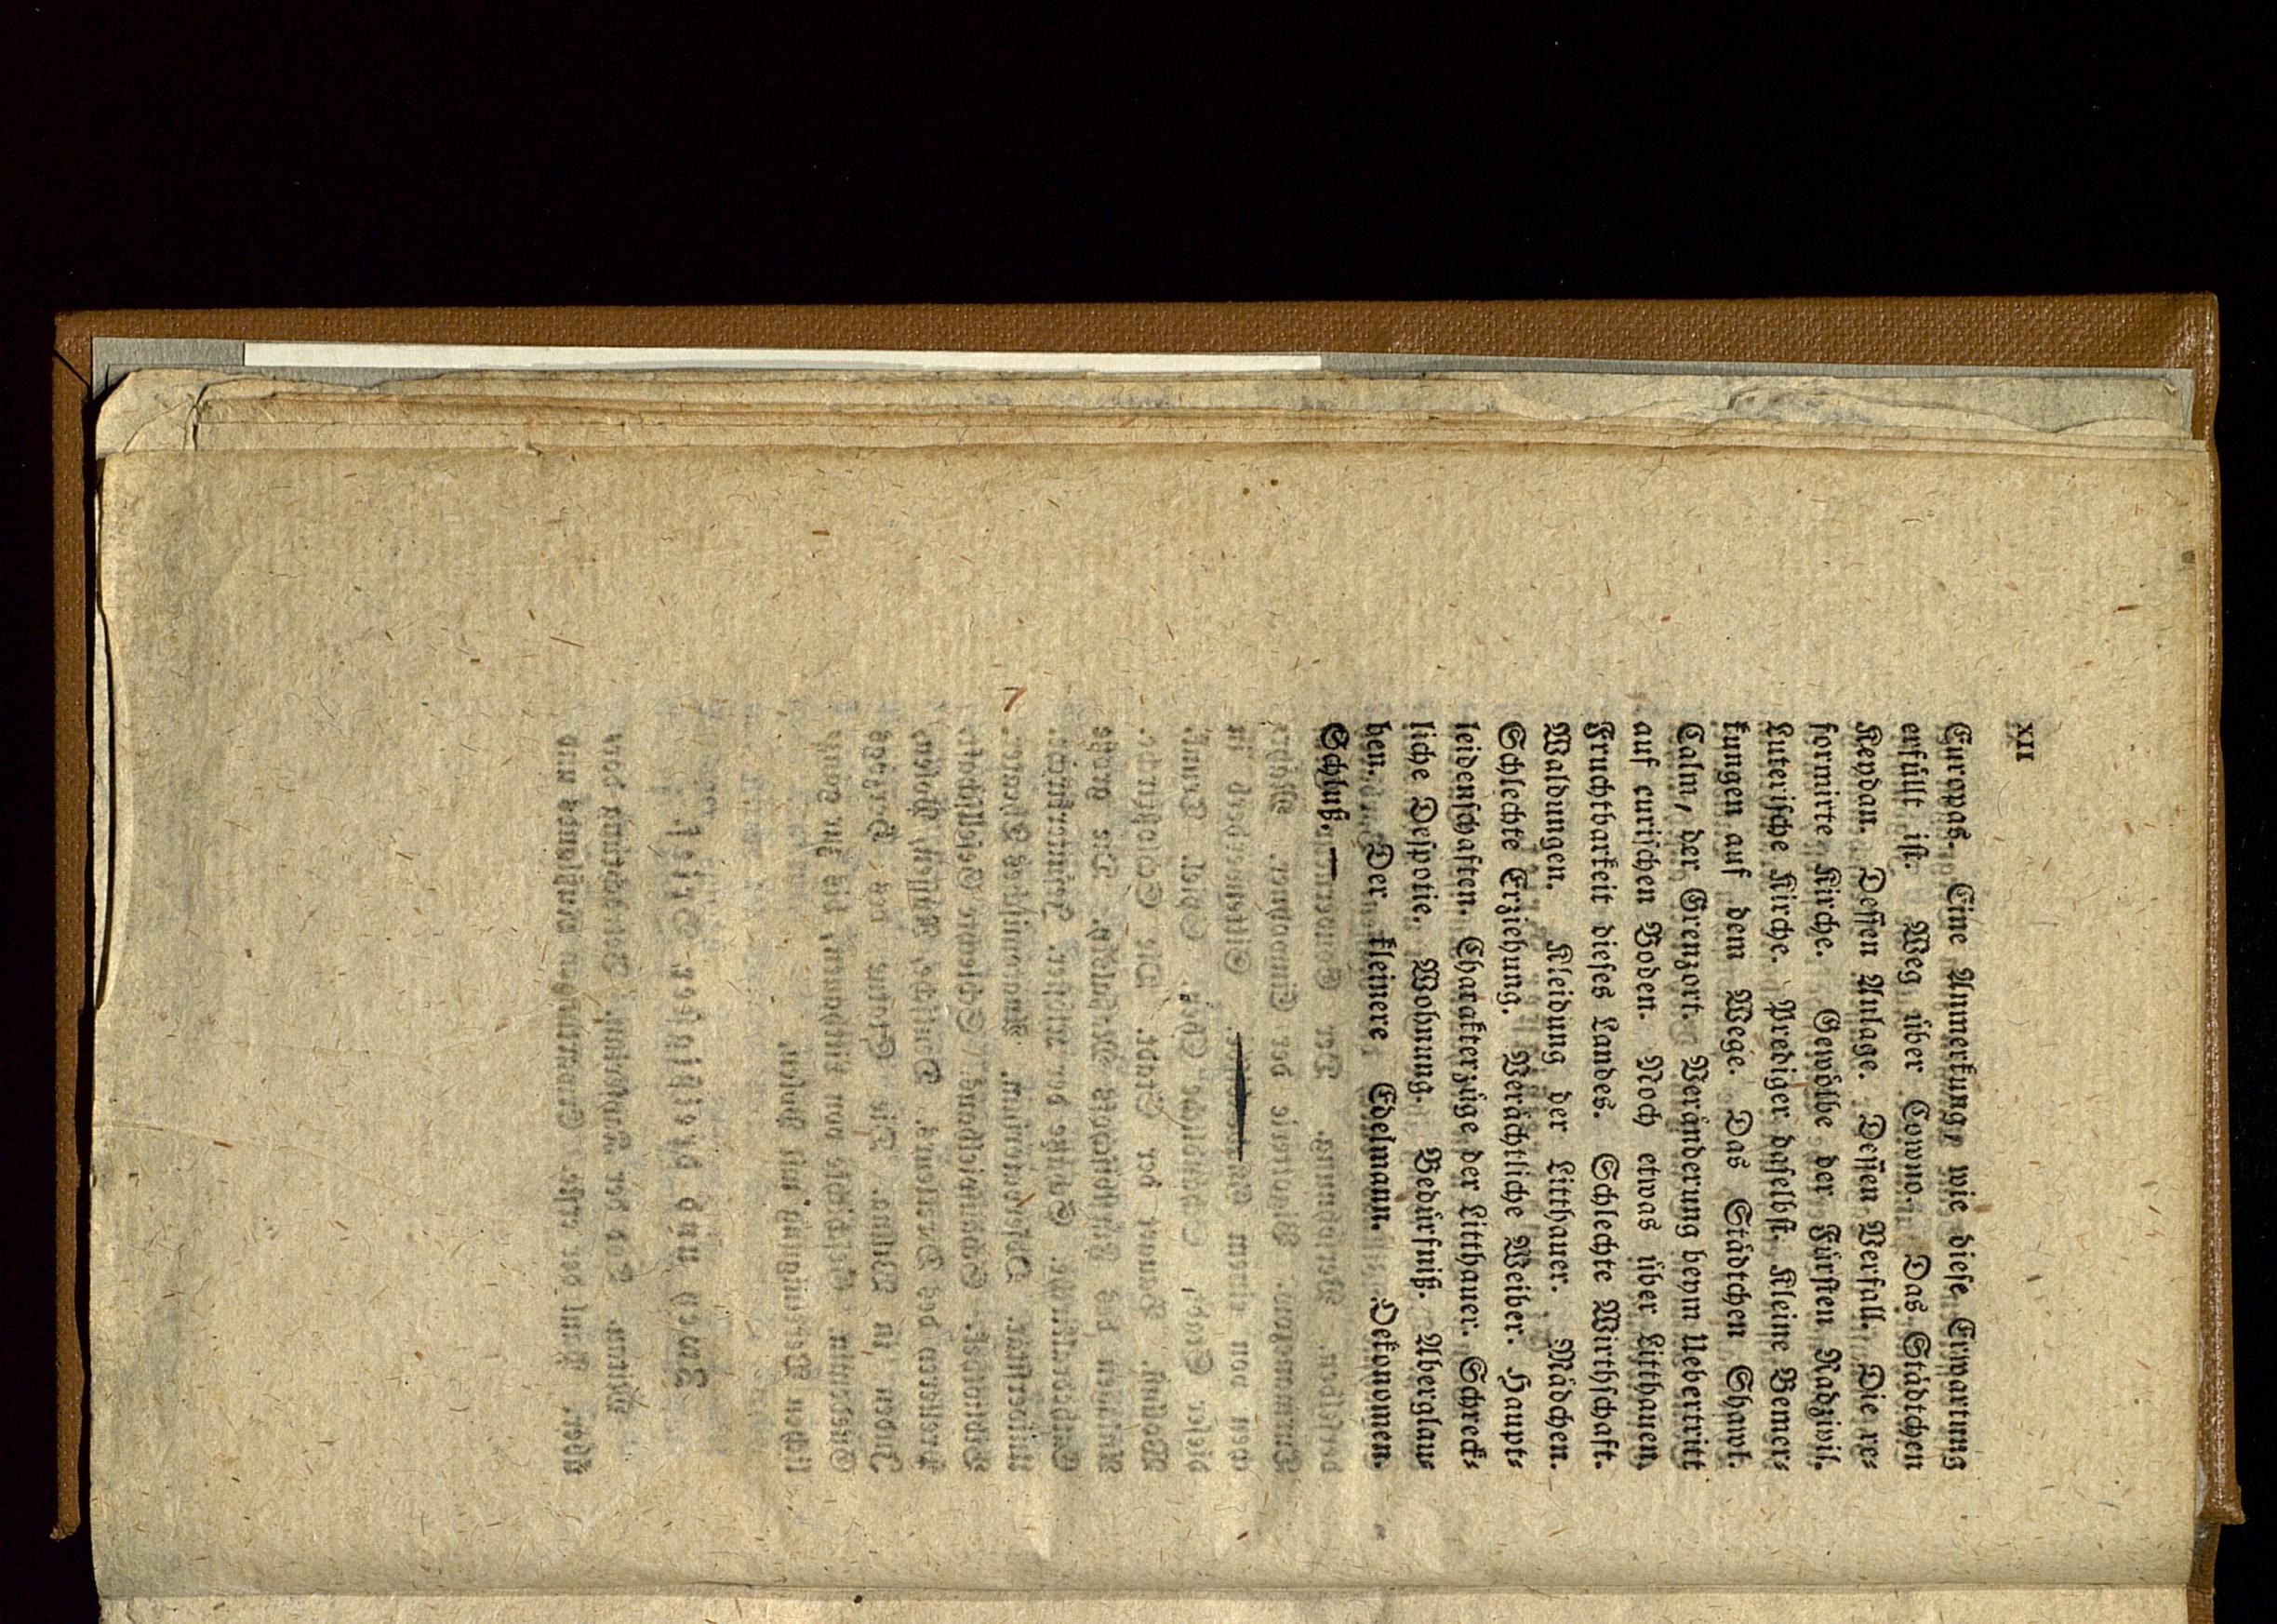 XII
Europas. Eine Anmerkung, wie diese Erwartung
erfüllt ist. Weg über Cowno. Das Städtchen
Keydan. Dessen Anlage. Dessen Verfall. Die re-
formirte Kirche. Gewölbe der Fürsten Radzivil.
Luterische Kirche. Prediger daselbst. Kleine Bemer-
kungen auf dem Wege. Das Städtchen Shawl.
Calm, der Grenzort. Veränderung beym Uebertritt
auf curischen Boden. Noch etwas über Litthauen.
Fruchtbarkeit dieses Landes. Schlechte Wirthschaft.
Waldungen. Kleidung der Litthauer. Mädchen.
Schlechte Erziehung. Verächtliche Weiber. Haupt-
leidenschaften. Charakterzüge der Litthauer. Schreck-
liche Despotie. Wohnung. Bedürfniß. Aberglau-
ben. Der kleinere Edelmann. Oekonomen.
Schluß. —